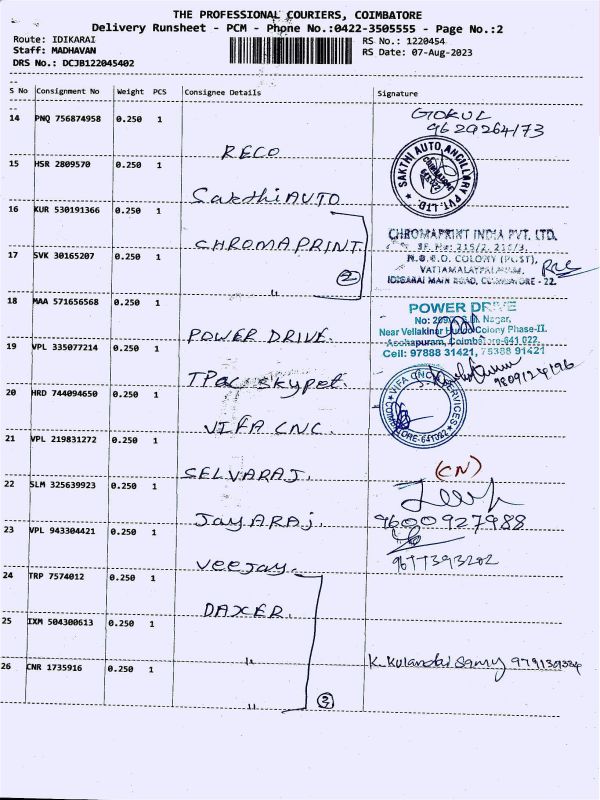 THE PROFESSIONAL COURIERS, COIMBATORE
Delivery Runsheet - PCM - Phone No.:0422-3505555 - Page No.:2
Route: IDIKARAI
RS No.: 1220454
Staff: MADHAVAN
RS Date: 07-Aug-2023
DRS No.: DCJB122045402
S No Consignment No Weight PCS Consignee Details Signature
14 PNQ 756874958 0.250 1 RECO
GOKUL
9629264173
SAKTHI AUTO ANCILLARY PVT. LTD.
15 HSR 2809570 0.250 1 Sakthi AUTO
16 KUR 530191366 0.250 1 CHROMAPRINT
CHROMAPRINT INDIA PVT. LTD.
SF. No: 215/2, 215/3,
COLONY (POST),
VATTAMALAYPALAYAM,
IDIGARAI MAIN ROAD, COIMBATORE - 22.
17 SVK 30165207 0.250 1 "
2
18 MAA 571656568 0.250 1 POWER DRIVE.
POWER DRIVE
Nagar,
Near Vellakinar Colony Phase-II.
Coimbatore-641 022.
Cell: 97888 31421, 75388 91421
19 VPL 335077214 0.250 1 TPac skypet
9809124196
20 HRD 744094650 0.250 1 VIFA CNC.
VIFA CNC SERVICES
21 VPL 219831272 0.250 1 SELVARAJ.
(CN)
22 SLM 325639923 0.250 1 JayARAj.
9600927988
23 VPL 943304421 0.250 1 Veejay.
9677393202
24 TRP 7574012 0.250 1 DAXER.
25 IXM 504300613 0.250 1 "
K. Kulandai Samy
26 CNR 1735916 0.250 1 "
3